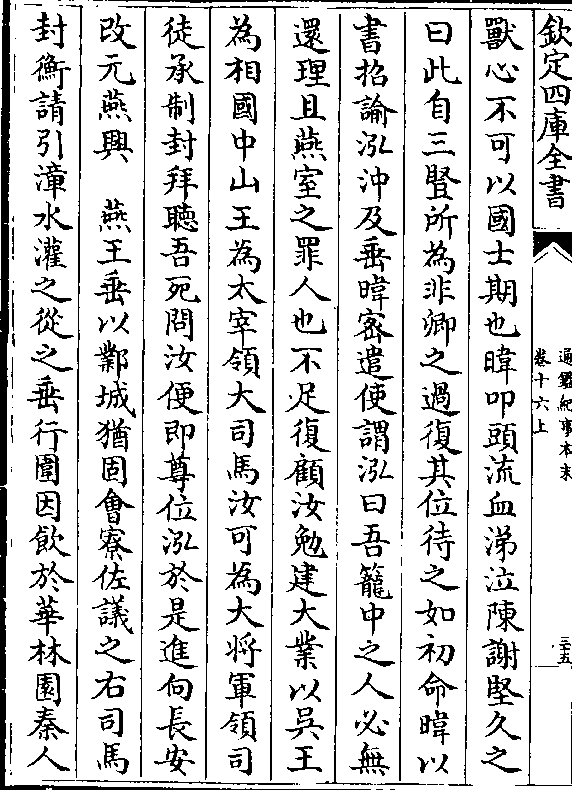 欽定四庫全書
通鑑紀事本末
卷十六上
三十五
獸心不可以國士期也暐叩頭流血涕泣陳謝堅久之
曰此自三豎所為非卿之過復其位待之如初命暐以
書招諭泓沖及垂暐宻遣使謂泓曰吾籠中之人必無
還理且燕室之罪人也不足復顧汝勉建大業以吳王
為相國中山王為太宰領大司馬汝可為大将軍領司
徒承制封拜聽吾死問汝便即尊位泓於是進向長安
改元燕興　燕王垂以鄴城猶固會寮佐議之右司馬
封衡請引漳水灌之從之垂行圍因飲於華林園秦人